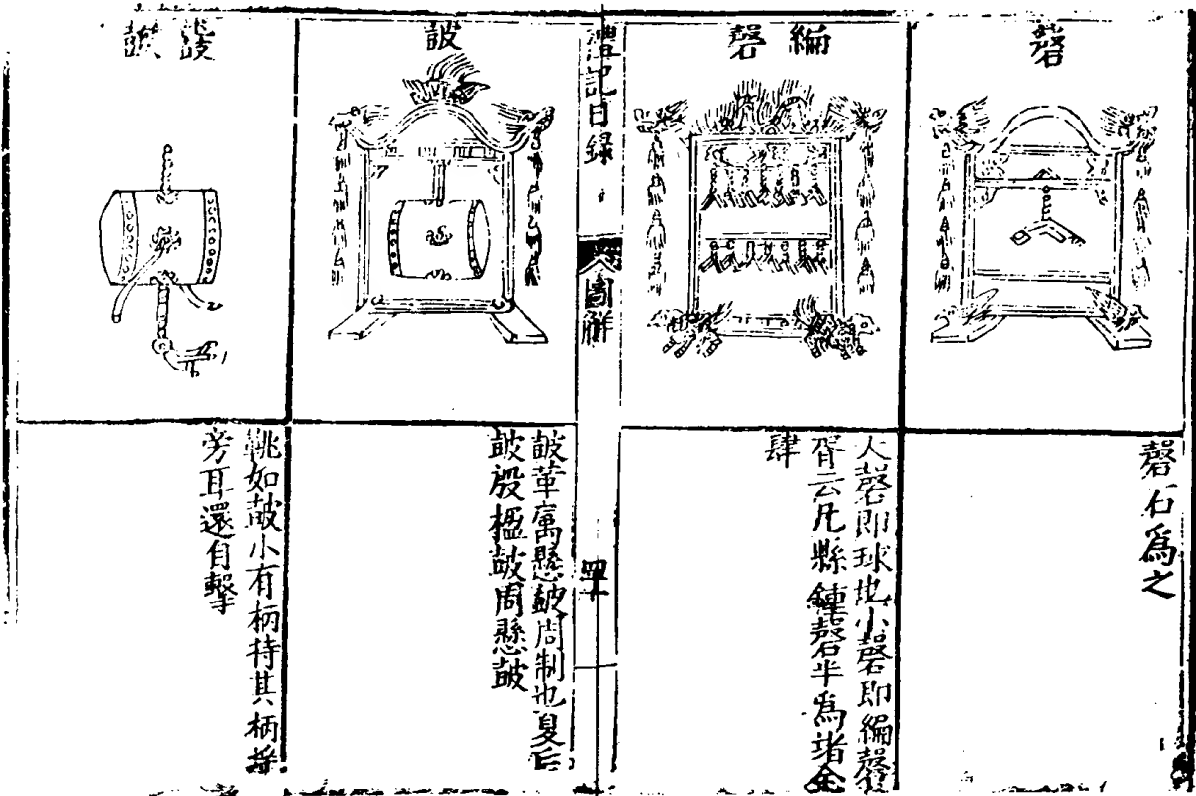 磬
磬石爲之
編磬
大磬即球也小磬即編磬
胥云凡縣鐘磬半爲堵全
肆
禮記目録
圖解
四十
皷
皷革屬懸皷周制也夏后
皷殷楹皷周懸皷
鼗皷
鞉如皷小有柄持其柄搖
旁耳還自擊